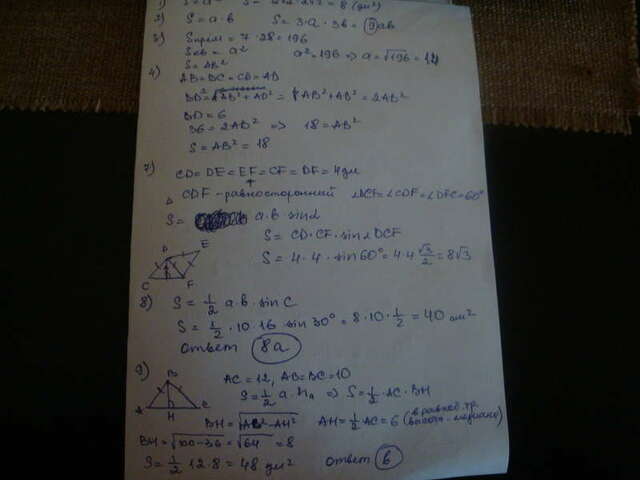 1) S = a² S = 2√2 · 2√2 = 8 (дм²)
2) S = a·b S = 3·a · 3b = 9ab
3) Sпрям = 7 · 28 = 196
Sкв = a² a² = 196 => a = √196 = 14
4) S = AB²
AB = BC = CD = AD
BD² = AB² + AD² = AB² + AB² = 2AB²
BD = 6
36 = 2AB² => 18 = AB²
S = AB² = 18
7) CD = DE = EF = CF = DF = 4дм
△ CDF - равносторонний ∠DCF = ∠CDF = ∠DFC = 60°
S = a·b·sin∠
S = CD·CF·sin∠DCF
S = 4·4·sin60° = 4·4 √3/2 = 8√3
D E
C F
8) S = 1/2 a·b·sin C
S = 1/2 · 10 · 16 · sin 30° = 8·10·1/2 = 40 см²
ответ 8a
9) AC = 12, AB = BC = 10
S = 1/2 a·Ha => S = 1/2 · AC · BH
B
A H C
BH = √AB² - AH² AH = 1/2 AC = 6 (в равноб. тр. высота - медиана)
BH = √100-36 = √64 = 8
S = 1/2 12·8 = 48 дм² ответ в